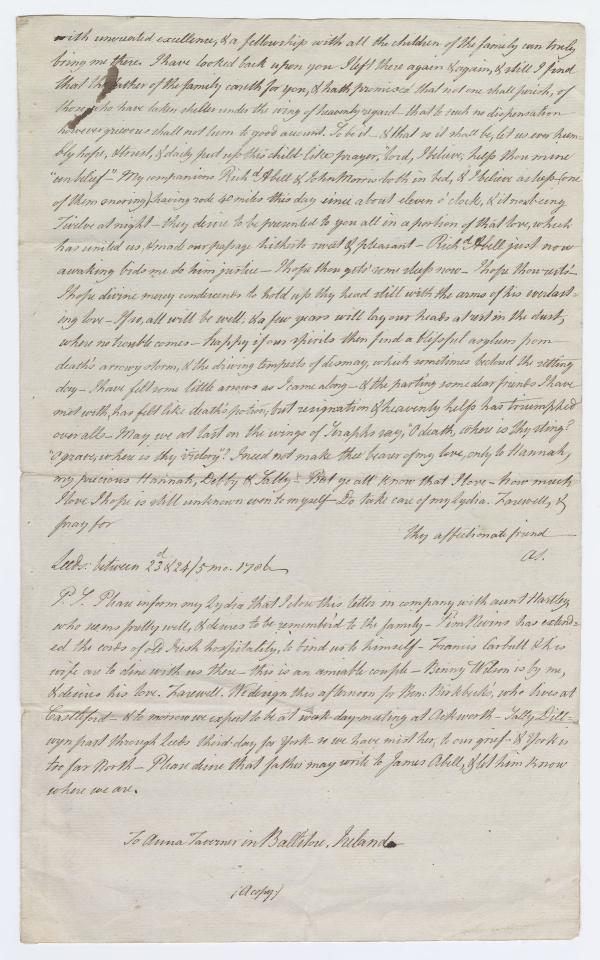 with uncreated excellence, & a fellowship with all the children of the family can truly
bring me there. I have looked back upon you I left there again & again, & still I find
that the father of the family careth for you, & hath promised that not one shall perish, of
those who have taken shelter under the wing of heavenly regard – that to such no dispensation
however grievous shall not turn to good account. So be it – & that so it shall be, let us ever hum=
bly hope, & trust, & daily put up this child-like prayer, "Lord, I believe, help thou mine
"unbelief." My companions Richd. Abell & John Morris both in bed, & I believe asleep (one
of them snoring) having rode 40 miles this day since about eleven o'clock, & it now being
Twelve at night – they desire to be presented to you all in a portion of that love, which
has united us, & made our passage hitherto sweet & pleasant – Richd. Abell just now
awaking bids me do him justice – I hope thou gets some sleep now – I hope thou rests
I hope divine mercy condescends to hold up thy head still with the arms of his everlast=
ing love – If so, all will be well, & a few years will lay our heads at rest in the dust,
where no trouble comes – happy if our spirits then find a blissful asylum from
death's arrowy storm, & the driving tempests of dismay, which sometimes becloud the setting
day – I have felt some little arrows as I came along – & the parting some dear friends I have
met with, has felt like death's potion, but resignation & heavenly help has triumphed
over all – May we at last on the wings of Seraphs say, "O death, where is thy sting?
"O grave, where is thy victory"? I need not make thee bearer of my love, only to Hannah,
my precious Hannah, Debby & Sally – But ye all know that I love – How much
I love I hope is still unknown even to myself – Do take care of my Lydia. Farewell, &
pray for
thy affectionate friend
AS.
Leeds: between 23d & 24/5 mo. 1786
P.S. Please inform my Lydia that I close this letter in company with aunt Hartley,
who seems pretty well, & desires to be remember'd to the family – Pim Nevins has extend=
ed the cords of old Irish hospitality, to bind us to himself – Francis Corbutt & his
wife are to dine with us there – this is an amiable couple – Benny Wilson is by me,
& desires his love. Farewell. We design this afternoon for Ben. Birkbeck, who lives at
Castleford – & to morrow we expect to be at week-day-meeting at Ackworth – Sally Dill=
wyn past through Leeds third-day for York so we have mist her, to our grief – & York is
too far North – Please desire that father may write to James Abell, & let him know
where we are.
To Anna Taverner in Ballitore, Ireland
(A copy)